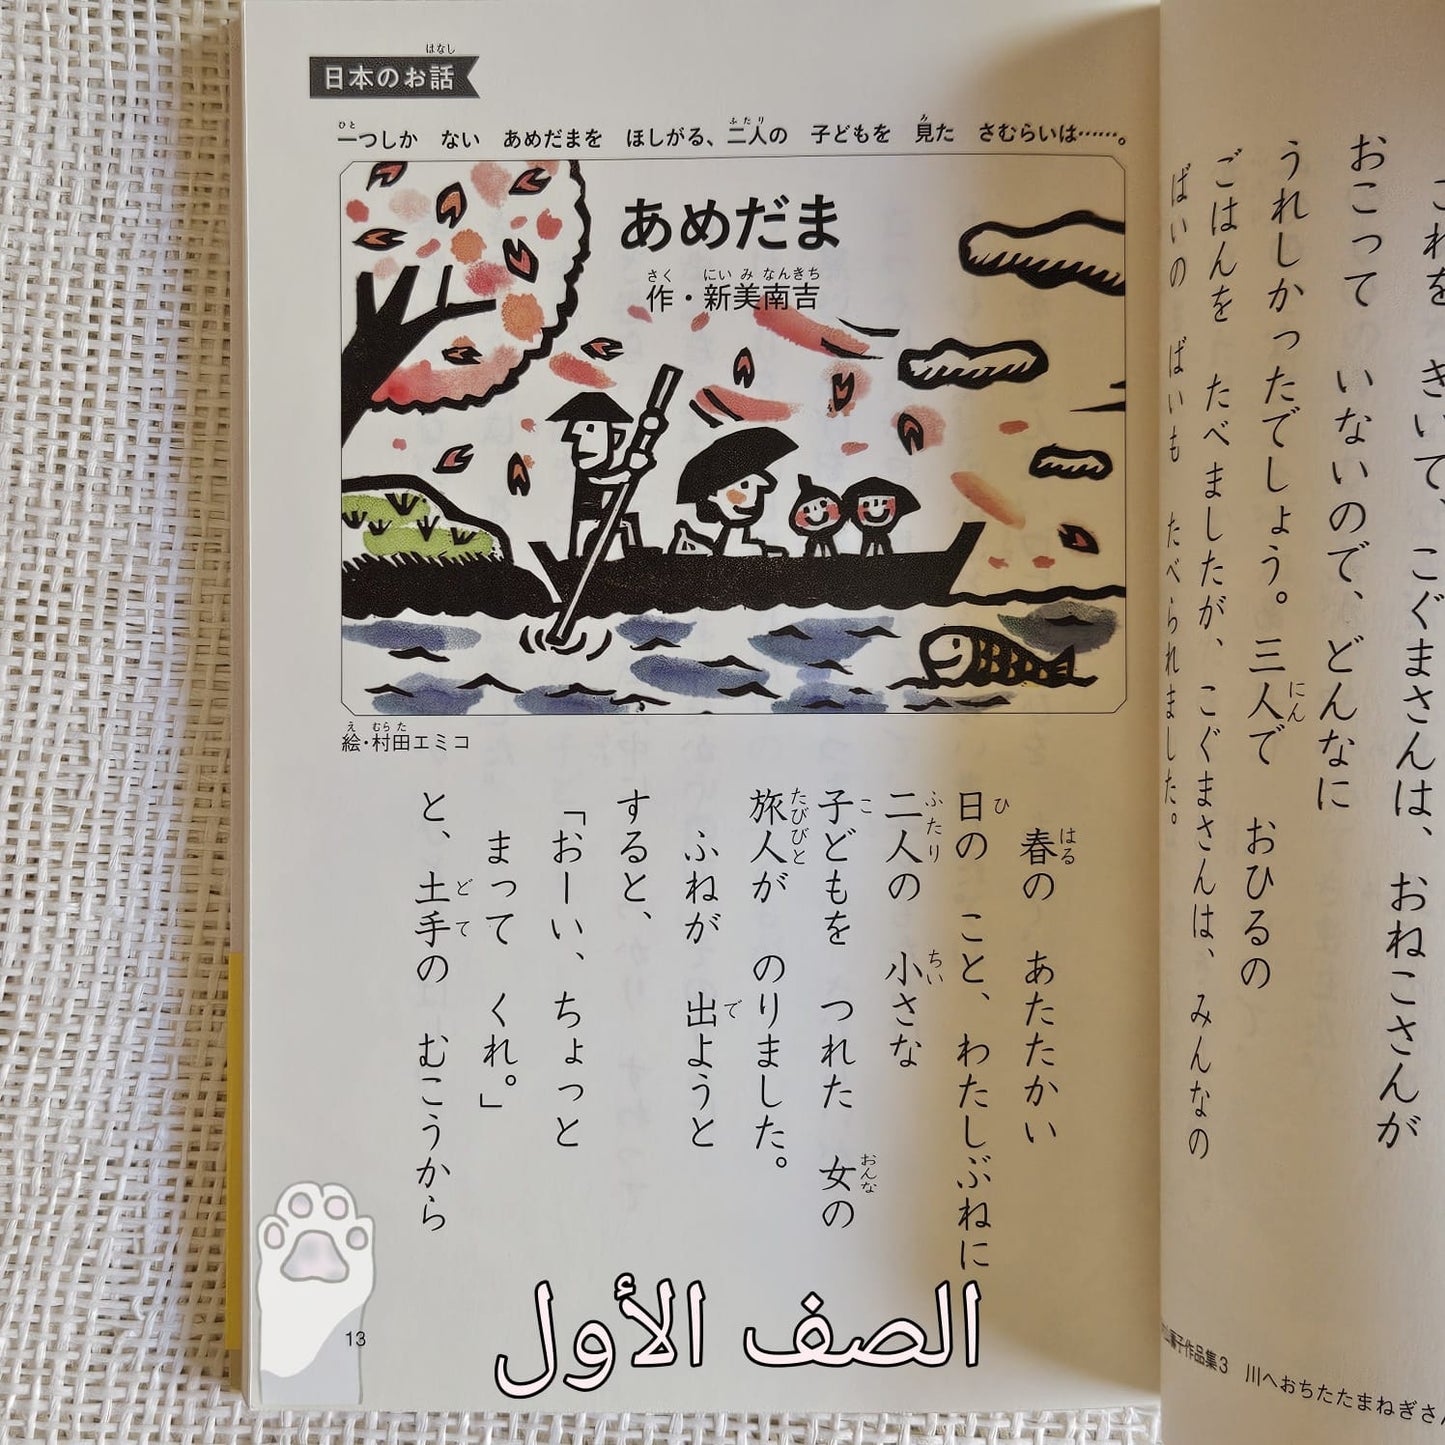 日本のお話
はなし
一つしか ない あめだまを ほしがる、二人の 子どもを 見た さむらいは……。
ひと ふたり み
あめだま
作・新美南吉
さく にい み なんきち
絵・村田エミコ
え むら た
春の あたたかい
はる
日の こと、わたしぶねに
ひ
二人の 小さな
ふたり ちい
子どもを つれた 女の
こ おんな
旅人が のりました。
たびびと
ふねが 出ようと
で
すると、
「おーい、ちょっと
まって くれ。」
と、土手の むこうから
どて
13
الصف الأول
きいて、こぐまさんは、おねこさんが
おこって いないので、どんなに
うれしかったでしょう。三人で おひるの
にん
ごはんを たべましたが、こぐまさんは、みんなの
ばいの ばいも たべられました。
子作品集3 川へおちたたまねぎさん